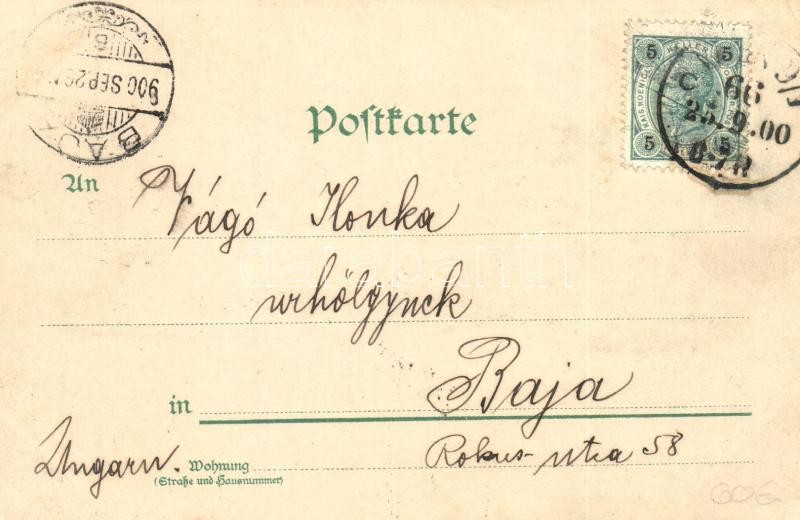 900 SEP 26
BAJA
5 HELLER 5
KAIS. KOENIGL.
5 5
66
25.9.00
Postkarte
An
Vágó Ilonka
darabanth
urhölgynek
in Baja
Ungarn. Wohnung
(Straße und Hausnummer)
Rokus-utca 58